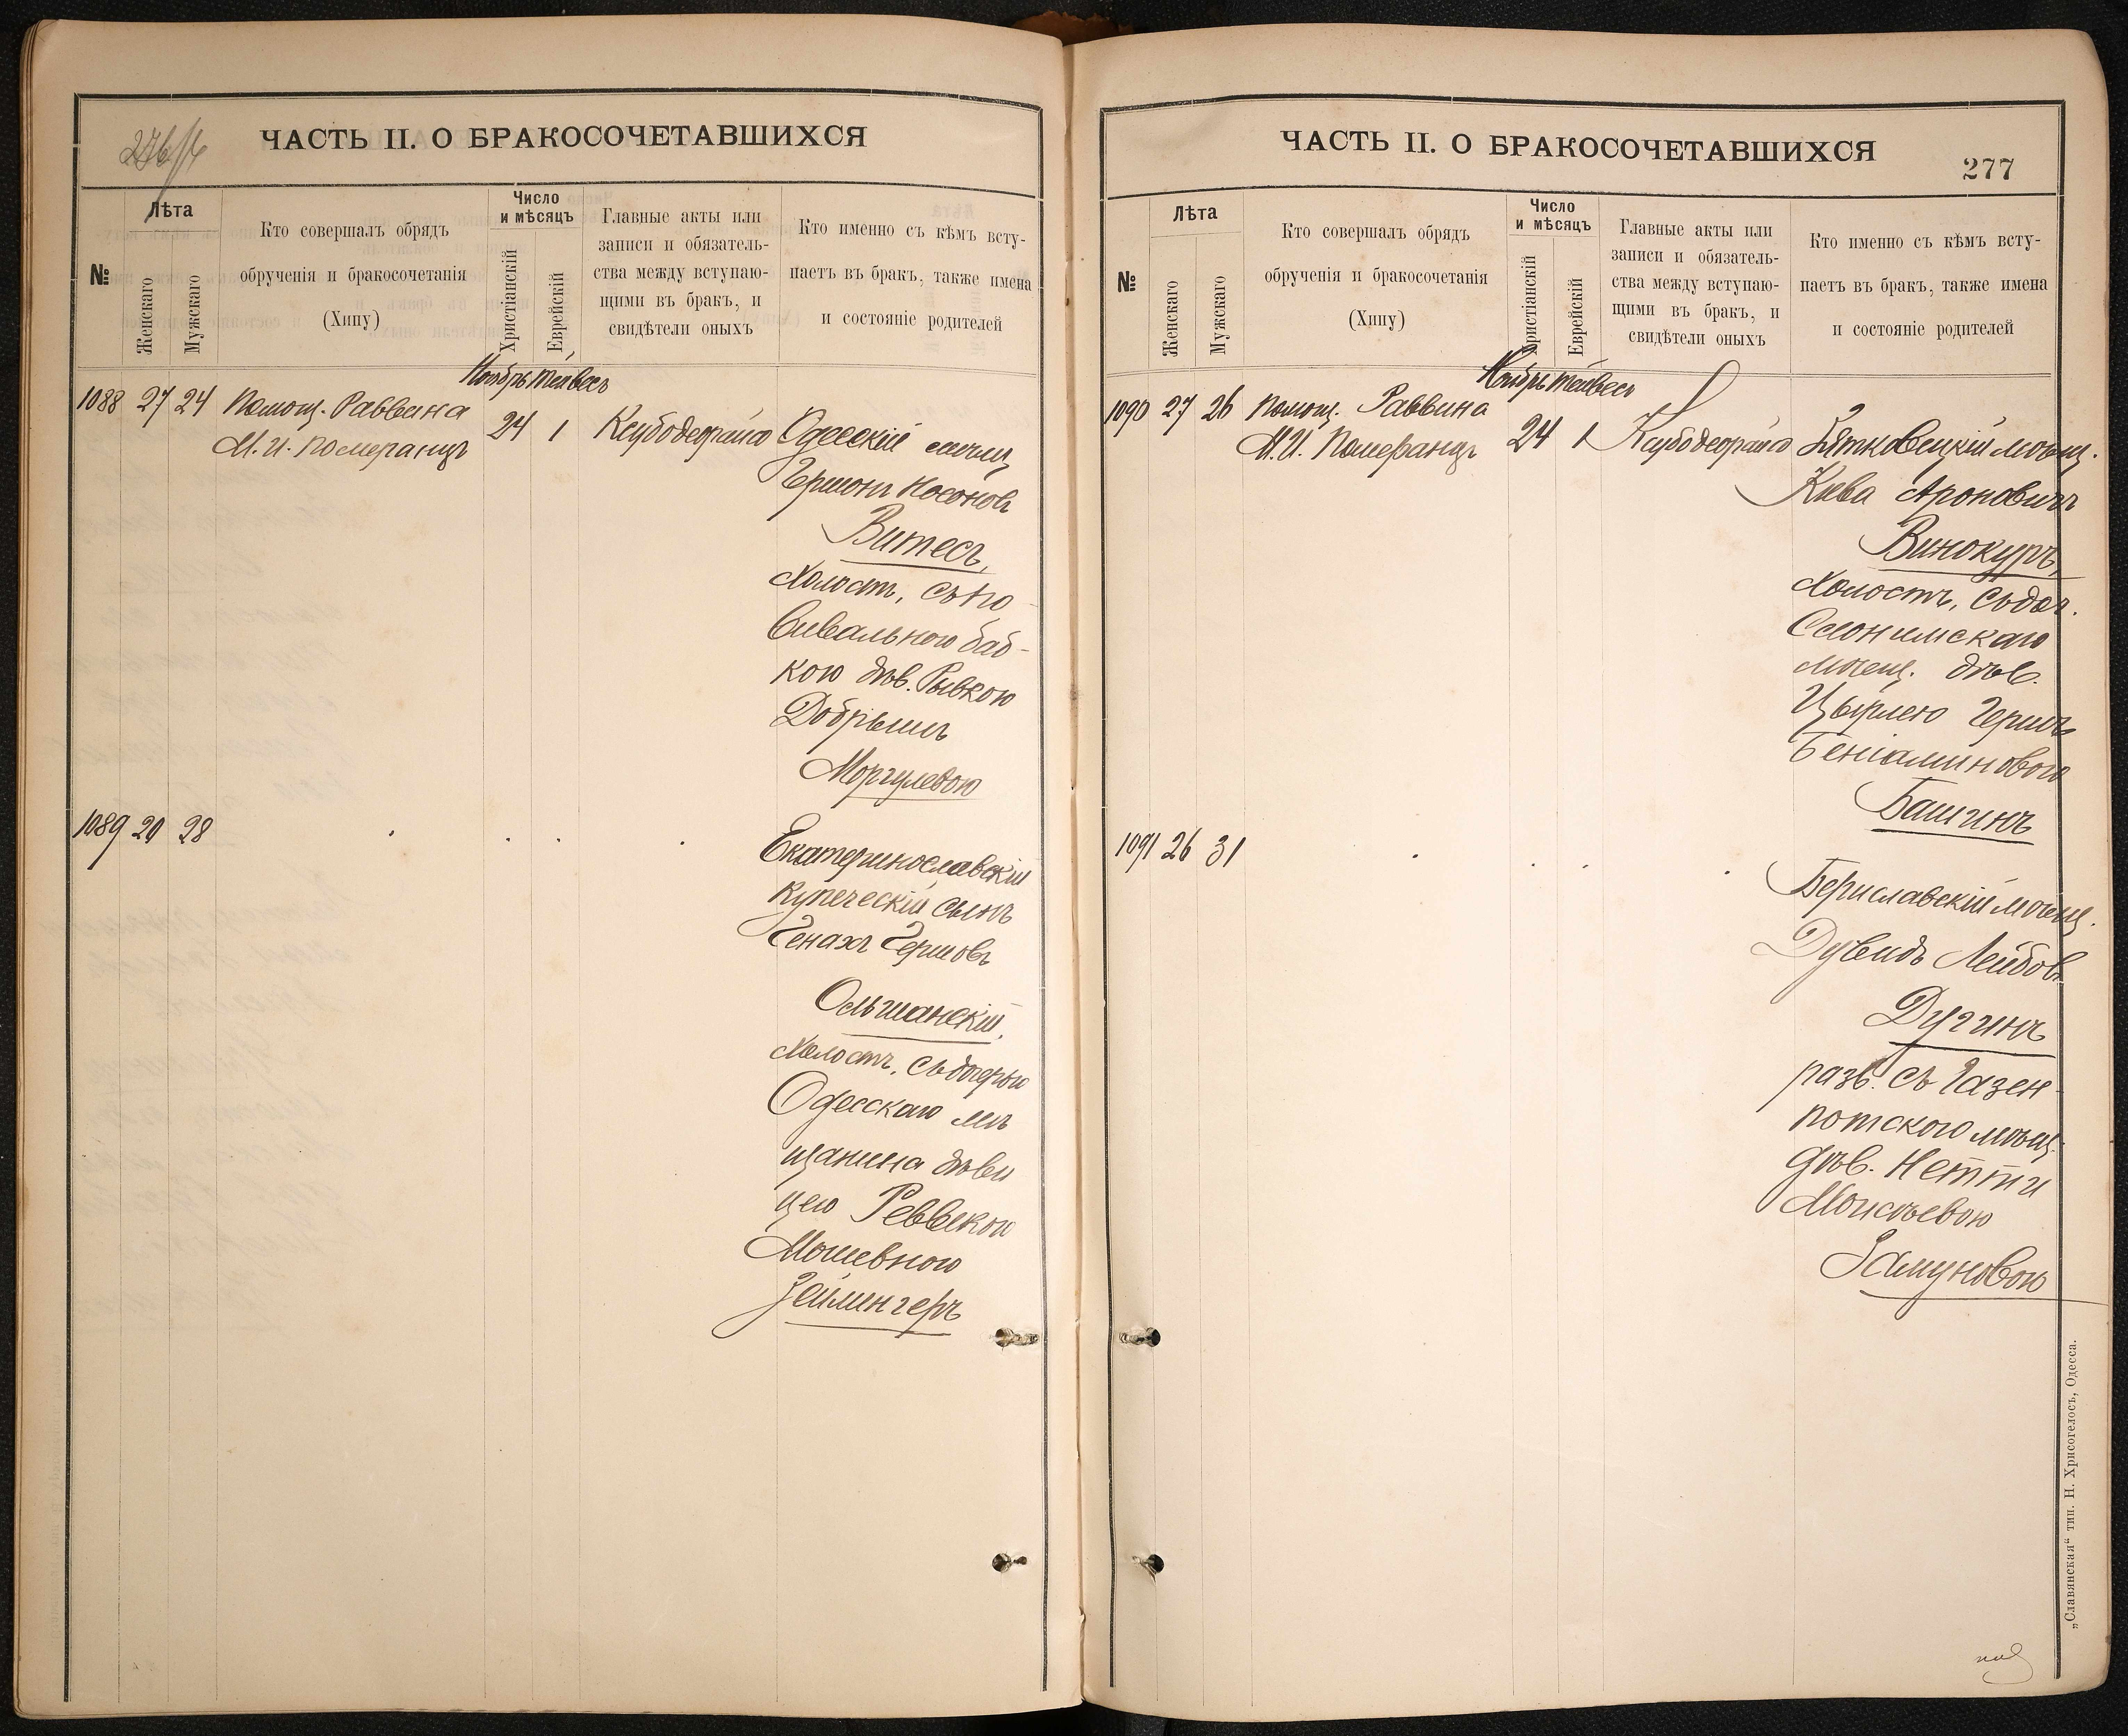 ЧАСТЬ II. О БРАКОСОЧЕТАВШИХСЯ
№
Лѣта
Женскаго
Мужскаго
Кто совершалъ обрядъ
обрученія и бракосочетанія
(Хипу)
Число
и мѣсяцъ
Христіанскій
Еврейскій
Главные акты или
записи и обязатель-
ства между вступаю-
щими въ бракъ, и
свидѣтели оныхъ
Кто именно съ кѣмъ всту-
паетъ въ бракъ, также имена
и состояніе родителей
Ноябрь Тейвесъ
1088 27 24 Помощ. Раввина
М. И. Померанцъ
24 1 Ксубодеорайсо Одесскій мѣщ.
Гершонъ Носоновъ
Витесъ,
холостъ, съ
кою дѣв. Рывкою
Добрышъ
Моргулевою
1089 20 28
Екатеринославскій
купеческій сынъ
Генахъ Гершовъ
Ольшанскій,
холостъ, съ дочерью
Одесскаго мѣ
щанина дѣви
цею Реввекою
Мошевною
Зейлингеръ
ЧАСТЬ II. О БРАКОСОЧЕТАВШИХСЯ
277
№
Лѣта
Женскаго
Мужскаго
Кто совершалъ обрядъ
обрученія и бракосочетанія
(Хипу)
Число
и мѣсяцъ
Христіанскій
Еврейскій
Главные акты или
записи и обязатель-
ства между вступаю-
щими въ бракъ, и
свидѣтели оныхъ
Кто именно съ кѣмъ всту-
паетъ въ бракъ, также имена
и состояніе родителей
Ноябрь Тейвесъ
1090 27 26 Помощ. Раввина
М. И. Померанцъ
24 1 Ксубодеорайсо мѣщ.
Кива Ароновичъ
Винокуръ,
холостъ, съ доч.
Слонимскаго
мѣщ. дѣв.
Цырлею Гершъ
Беніаминовою
Башинъ
1091 26 31
Бериславскій мѣщ.
Дувидъ Лейбовъ
Дугинъ
разв. съ Газен-
потского мѣщ.
дѣв. Нетти
Моисѣевою
Замуновою
„Славянская“ тип. Н. Хрисогелосъ, Одесса.